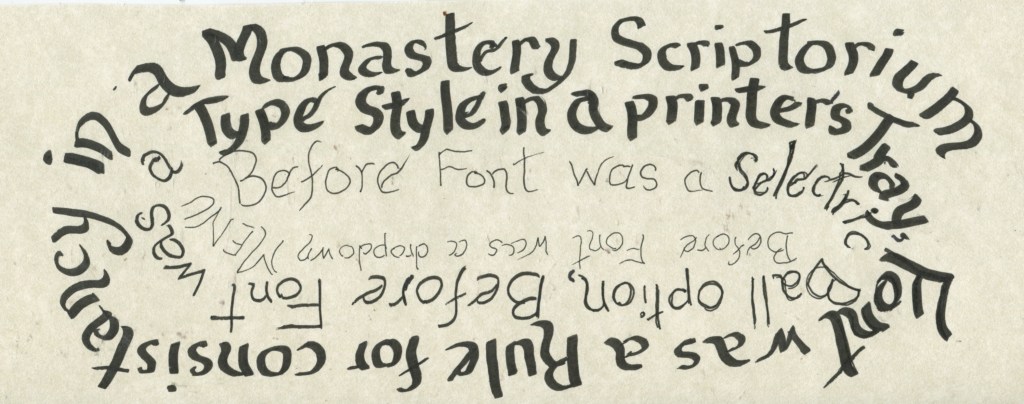 Before Font was a dropdown MENU
Before Font was a Selectric
Ball option, Before Font
was a Type Style in a printer's Tray,
Font was a Rule for consistancy in a Monastery Scriptorium